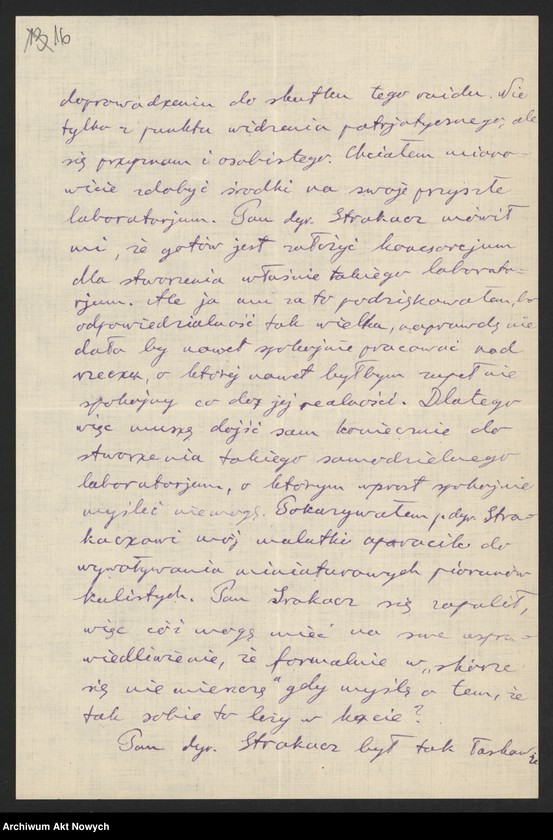 16
doprowadzeniu do skutku tego raidu. Nie
tylko z punktu widzenia patrjotycznego, ale
się przyznam i osobistego. Chciałem miano-
wicie zdobyć środki na swoje przyszłe
laboratorjum. Pan dyr. Strakacz mówił
mi, że gotów jest założyć koncsorcjum
dla stworzenia właśnie takiego laborato-
rjum. Ale ja mu za to podziękowałem, bo
odpowiedzialność tak wielka, naprawdę nie
dała by nawet spokojnie pracować nad
rzeczą, o której nawet byłbym zupełnie
spokojny co do jej realności. Dlatego
więc muszę dojść sam koniecznie do
stworzenia takiego samodzielnego
laboratorjum, o którym wprost spokojnie
myśleć nie mogę. Pokazywałem p. dyr. Stra-
kaczowi mój malutki aparacik do
wywoływania miniaturowych piorunów
kulistych. Pan Strakacz się zapalił,
więc cóż mogę mieć na swe uspra-
wiedliwienie, że formalnie w „skórze
się nie mieszczę" gdy myślę o tem, że
tak sobie to leży w kącie?
Pan dyr. Strakacz był tak łaskaw, że
Archiwum Akt Nowych